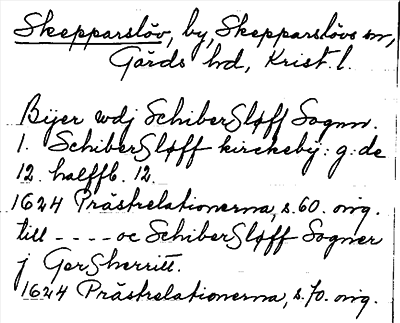 Skepparslöv, by, Skepparslövs sn,
Gärds hd, Krist. l.
Bÿer wdj SchiberSløff Sognn.
1. SchiberSløff kirckebÿ: g: de
12. halffb. 12.
1624 Prästrelationerna, s. 60. orig.
till - - - - oc SchiberSløff Sogner
j GerSherritt.
1624 Prästrelationerna, s. 70. orig.